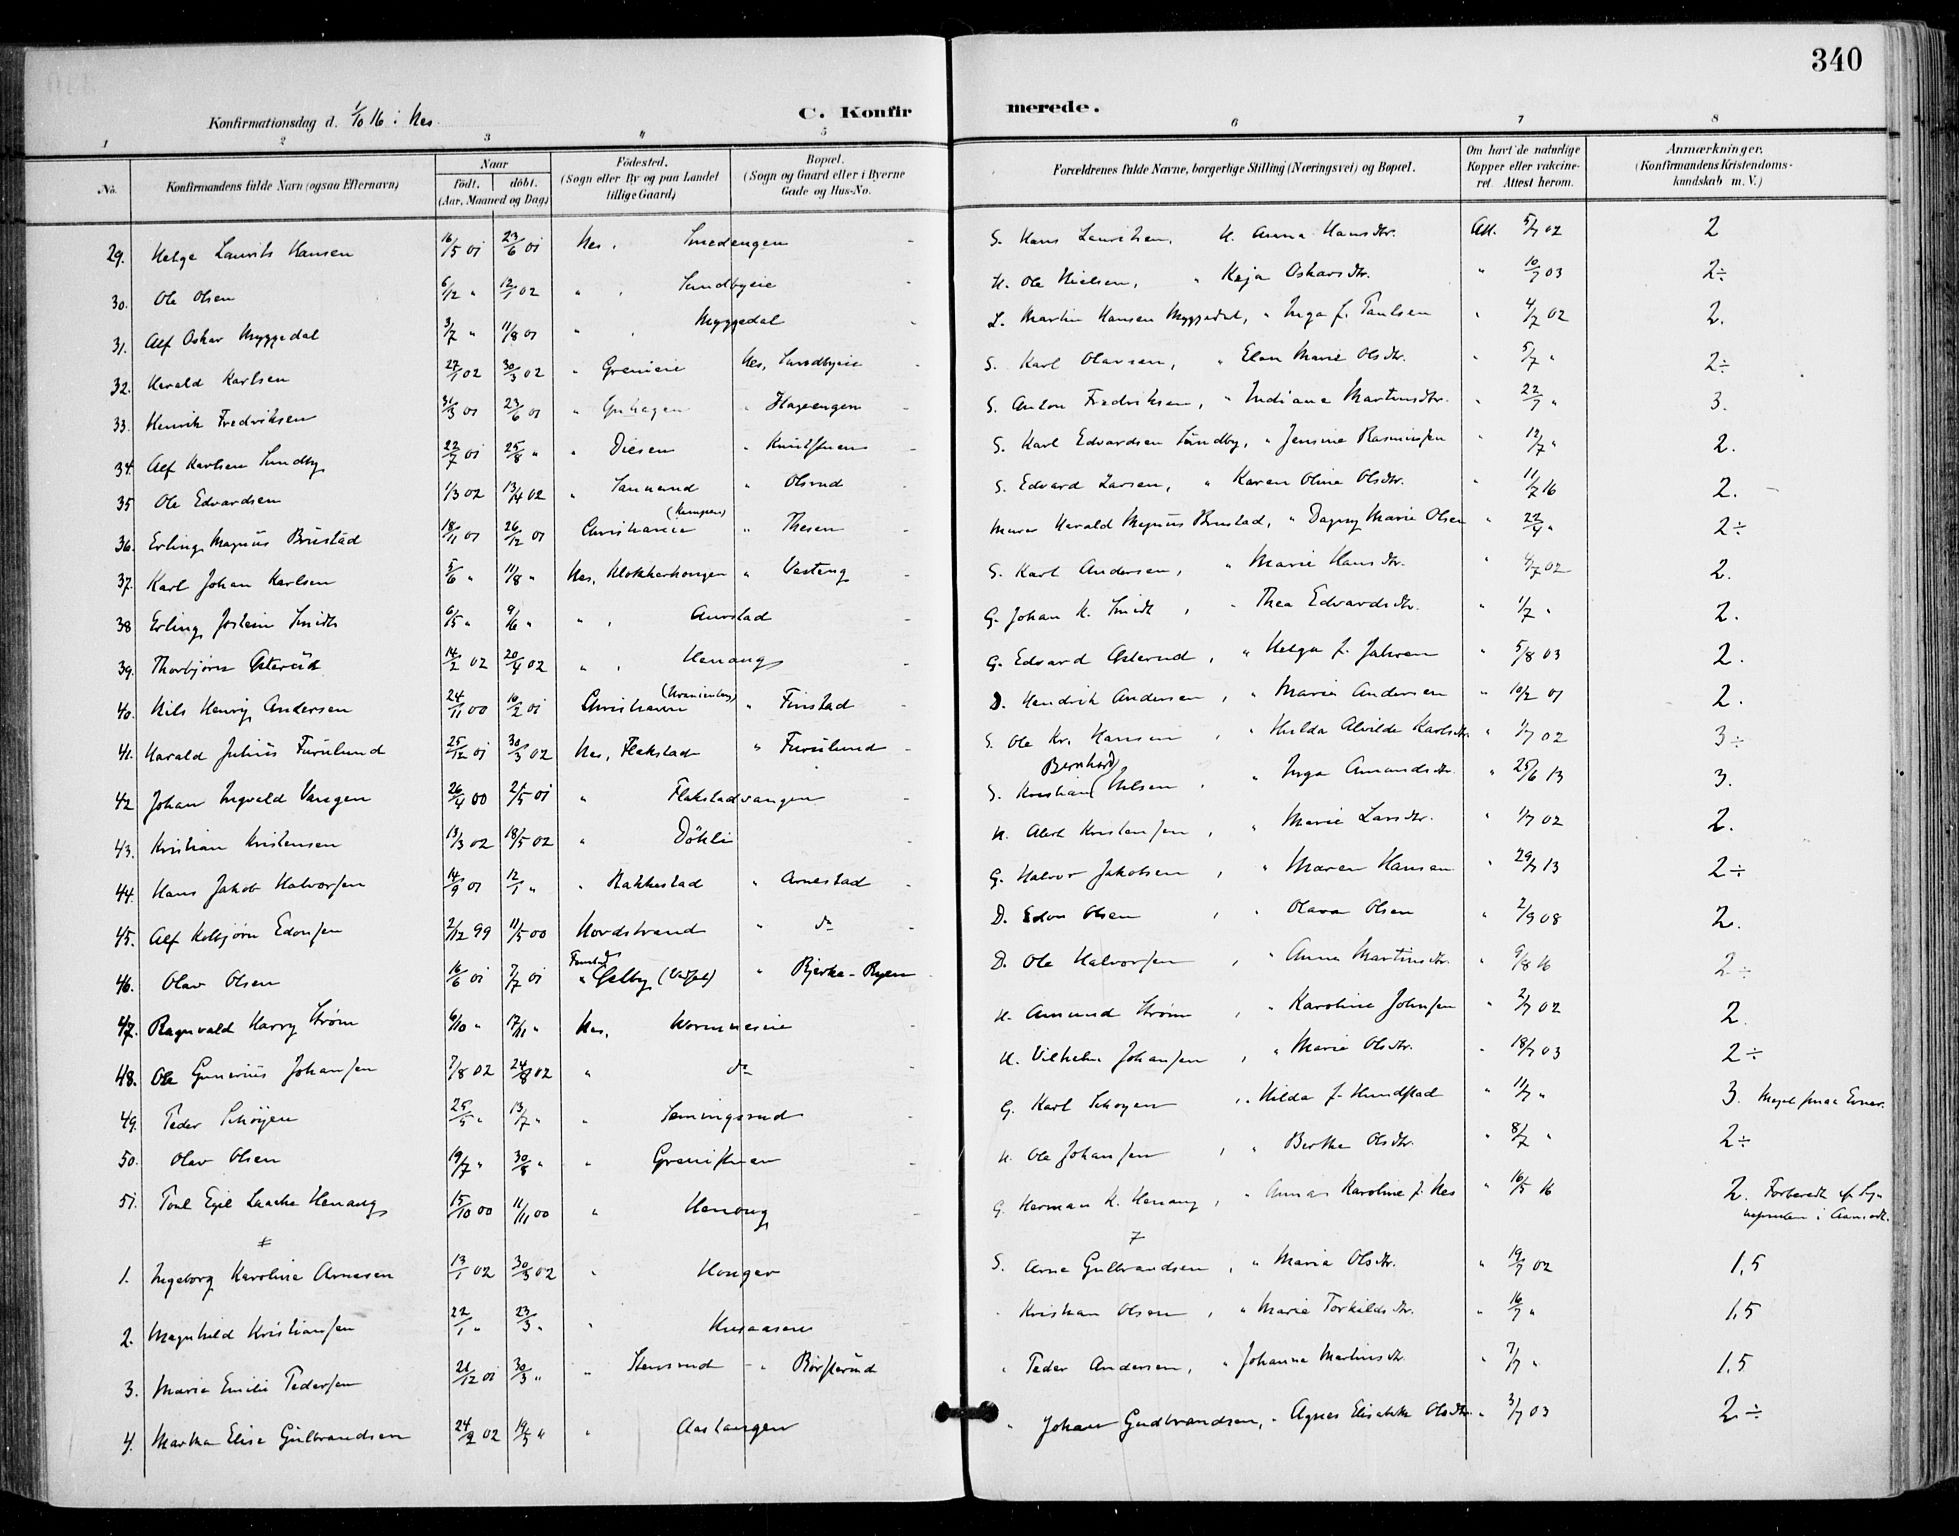 340
Konfirmationsdag d. 1/10 16 i Nes.
C. Konfir merede.
1 2 3 4 5 6 7 8
No. Konfirmandens fulde Navn (ogsaa Efternavn) Naar født. døbt. (Aar, Maaned og Dag) Fødested. (Sogn eller By og paa Landet tillige Gaard) Bopæl. (Sogn og Gaard eller i Byerne Gade og Hus-No. Forældrenes fulde Navne, borgerlige Stilling (Næringsvei) og Bopæl. Om havt de naturlige Kopper eller vakcineret. Attest herom. Anmærkninger. (Konfirmandens Kristendomskundskab m. V.)
29. Helge Laurits Hansen 16/5 01 23/6 01 Nes, Smedengen S. Hans Lauritsen, H. Anna Hansdtr. Att. 5/7 02 2
30. Ole Olsen 6/12 " 12/1 02 " Sundbyeie H. Ole Nielsen, " Kaja Oskarsdtr. " 10/7 03 2÷
31. Alf Oskar Myggedal 3/7 " 11/8 01 " Myggedal L. Martin Hansen Myggedal, " Inga f. Paulsen " 4/7 02 2.
32. Harald Karlsen 27/1 02 30/3 02 " Greneie Nes, Sundbyeie S. Karl Olavsen, " Elen Marie Olsdtr. " 5/7 " 2÷
33. Henrik Fredriksen 31/3 01 23/6 01 " " Hageengen S. Anton Fredriksen, " Indiana Martinsdtr. " 22/7 " 3.
34. Alf Karlsen Sundby 22/7 01 25/8 " " Diesen " S. Karl Edvardsen Sundby, " Jensine Rasmussen " 12/7 " 2.
35 Ole Edvardsen 1/3 02 13/4 02 " Sannerud " Olsrud S. Edvard Larsen, " Karen Oline Olsdtr. " 11/7 16 2. –
36. Erling Magnus Brustad 18/11 01 26/12 01 Christiania (Kampen) " Thesen Murer Harald Magnus Brustad, " Dagny Marie Olsen " 22/4 " 2÷
37. Karl Johan Karlsen 5/6 " 11/8 " Nes, Klokkerhongen " Vesteng S. Karl Andersen, " Marie Hansdtr. " 4/7 02 2.
38 Erling Jostein Smidt 6/5 " 9/6 " " Aurstad G. Johan K. Smidt, " Thea Edvardsdtr. " 1/7 " 2.
39. Thorbjørn Østerud 14/2 02 20/4 02 " Henang G. Edvard Østerud, " Helga f. Jahren " 5/8 03 2.
40. Nils Henry Andersen 24/11 00 10/2 01 Christiania (Uranienborg) " Finstad D. Hendrik Andersen, " Maria Andersen " 10/2 01 2.
41. Harald Julius Furulund 25/12 01 30/3 02 Nes, Flakstad " Furulund S. Ole Kr. Hansen, " Hulda Alvilde Karlsdtr. " 1/7 02 3÷
42 Johan Ingvald Vangen 26/4 00 2/5 01 " Flakstadvangen S. Kristian Bernhard Nilsen, " Inga Amundsdtr. " 25/6 13 3.
43. Kristian Kristensen 13/3 02 18/5 02 " Døhli H. Albert Kristensen, " Marie Larsdtr. " 1/7 02 2.
44. Hans Jakob Halvorsen 14/9 01 12/1 " " Rakkestad " Arnestad G. Halvor Jakobsen, " Maren Hansen " 29/7 13 2÷
45. Alf Kolbjørn Edonsen 2/12 99 11/5 00 Nordstrand " do D. Edon Olsen, " Olava Olsen " 2/9 08 2.
46. Olav Olsen 16/6 01 7/7 01 " " Bjerke-Ryen D. Ole Halvorsen, " Anna Martinsdtr. " 9/8 16 2÷
47. Ragnvald Harry Strøm 6/10 " 17/11 " Nes, Wormneseie H. Amund Strøm, " Karoline Johnsen " 2/7 02 2.
48. Ole Gunerius Johansen 7/8 02 24/8 02 " do H. Vilhelm Johansen, " Marie Olsdtr. " 18/7 03 2÷
49. Peder Schøyen 25/5 " 13/7 " " Semingsrud G. Karl Schøyen, " Hilda f. Hundstad " 11/7 " 3. Meget smaa Evner.
50. Olav Olsen 19/7 " 30/8 " " H. Ole Johansen, " Berthe Olsdtr. " 8/7 " 2÷
51. Poul Egil Laache Henang 15/10 00 11/11 00 " Henang G. Herman K. Henang, " Anna Karoline f. Nes " 16/5 16 2. Forberedt af Sognepresten i
1. Ingeborg Karoline Arnesen 13/1 02 30/3 02 " Honger S. Arne Gulbrandsen, " Maria Olsdtr. " 19/7 02 1,5
2. Magnhild Kristiansen 22/1 " 23/3 " " Husaasen " Kristian Olsen, " Marie Torkildsdtr. " 16/7 " 1,5
3. Marie Emilie Pedersen 21/12 01 30/3 " " Stensrud " Børsterud " Peder Andersen, " Johanne Martinsdtr. " 7/7 " 1,5
4. Martha Elise Gulbrandsen 24/2 02 19/5 " " Aastangen " Johan Gudbrandsen, " Agnes Elisabeth Olsdtr. " 3/7 03 2÷